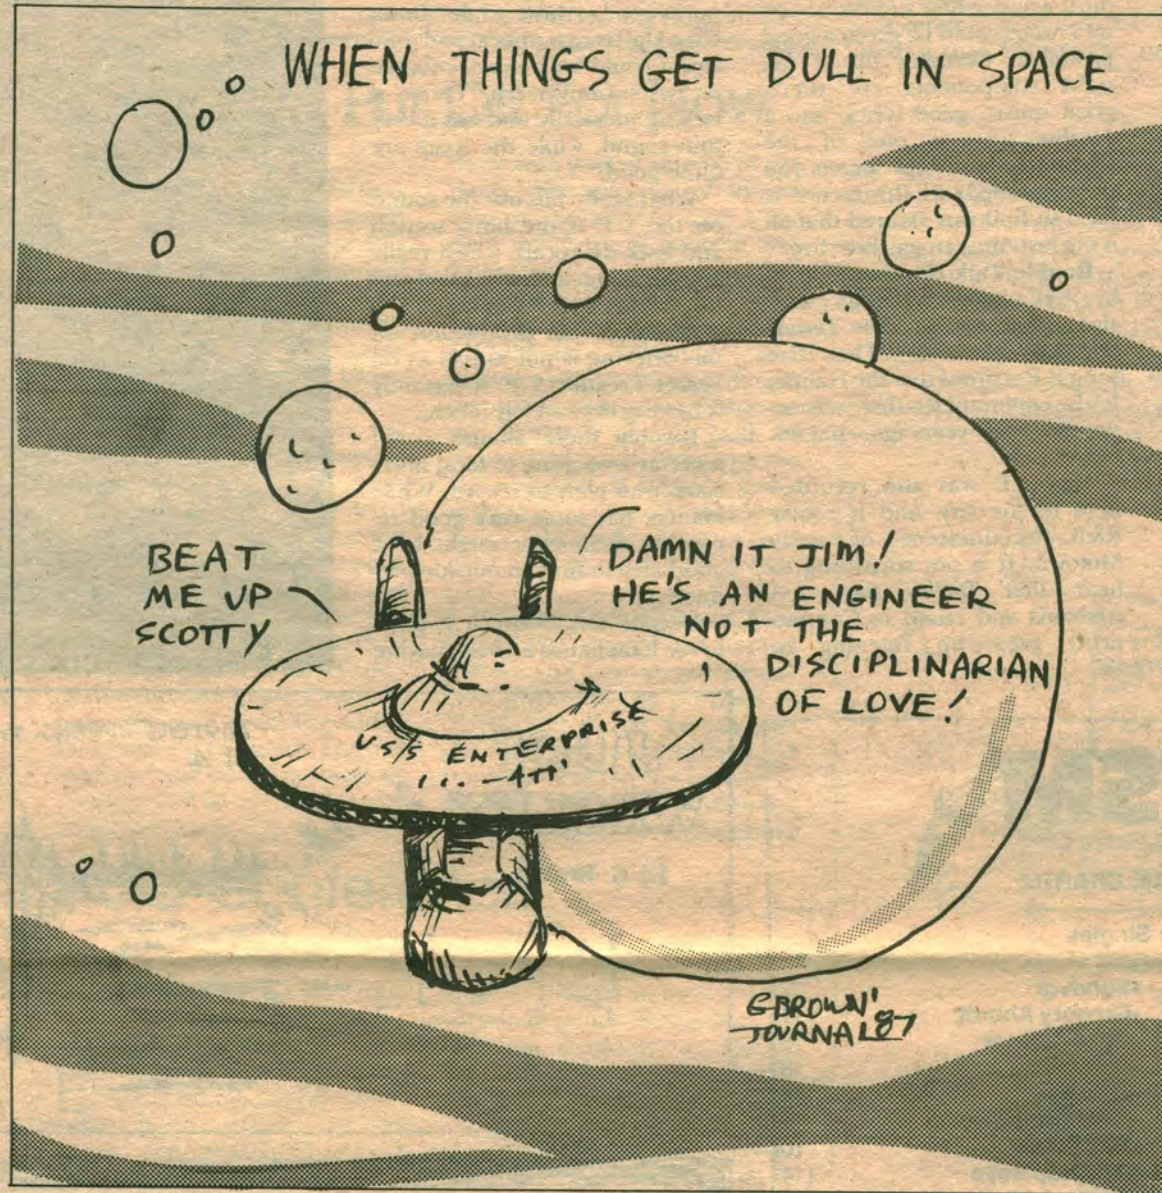 WHEN THINGS GET DULL IN SPACE
BEAT
ME UP
SCOTTY
DAMN IT JIM!
HE'S AN ENGINEER
NOT THE
DISCIPLINARIAN
OF LOVE!
USS ENTERPRISE
GBROWN'
JOURNAL 87